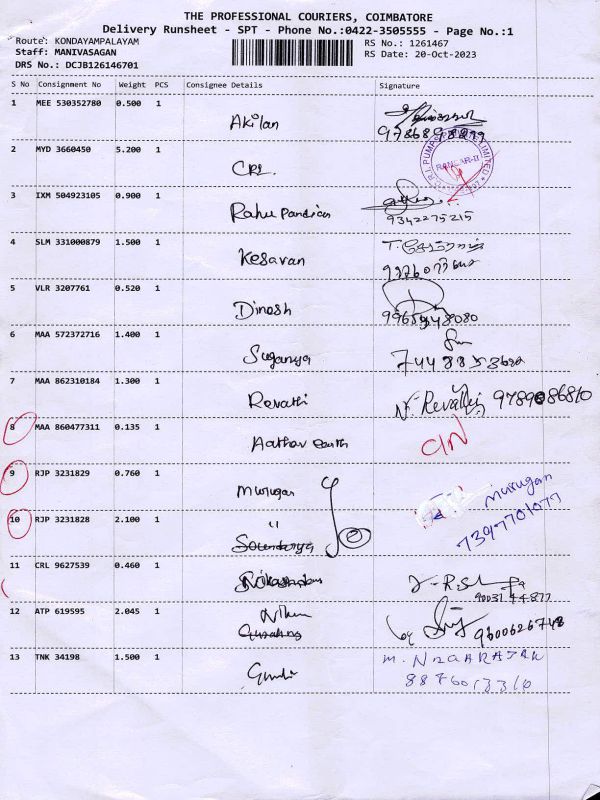 THE PROFESSIONAL COURIERS, COIMBATORE
Delivery Runsheet - SPT - Phone No.:0422-3505555 - Page No.:1
Route: KONDAYAMPALAYAM RS No.: 1261467
Staff: MANIVASAGAN RS Date: 20-Oct-2023
DRS No.: DCJB126146701
S No Consignment No Weight PCS Consignee Details Signature
1 MEE 530352780 0.500 1
Akilan
2 MYD 3660450 5.200 1
CRI.
3 IXM 504923105 0.900 1
Rahu Pandian 9342275215
4 SLM 331000879 1.500 1
Kesavan
5 VLR 3207761 0.520 1
Dinesh
6 MAA 572372716 1.400 1
Suganya
7 MAA 862310184 1.300 1
Revathi N. Revathi 9789086810
8 MAA 860477311 0.135 1
C/N
9 RJP 3231829 0.760 1
Murugan Murugan
10 RJP 3231828 2.100 1
" 7397701077
Soundarya
11 CRL 9627539 0.460 1
12 ATP 619595 2.045 1
9600626748
13 TNK 34198 1.500 1
M. NAGARAJAN